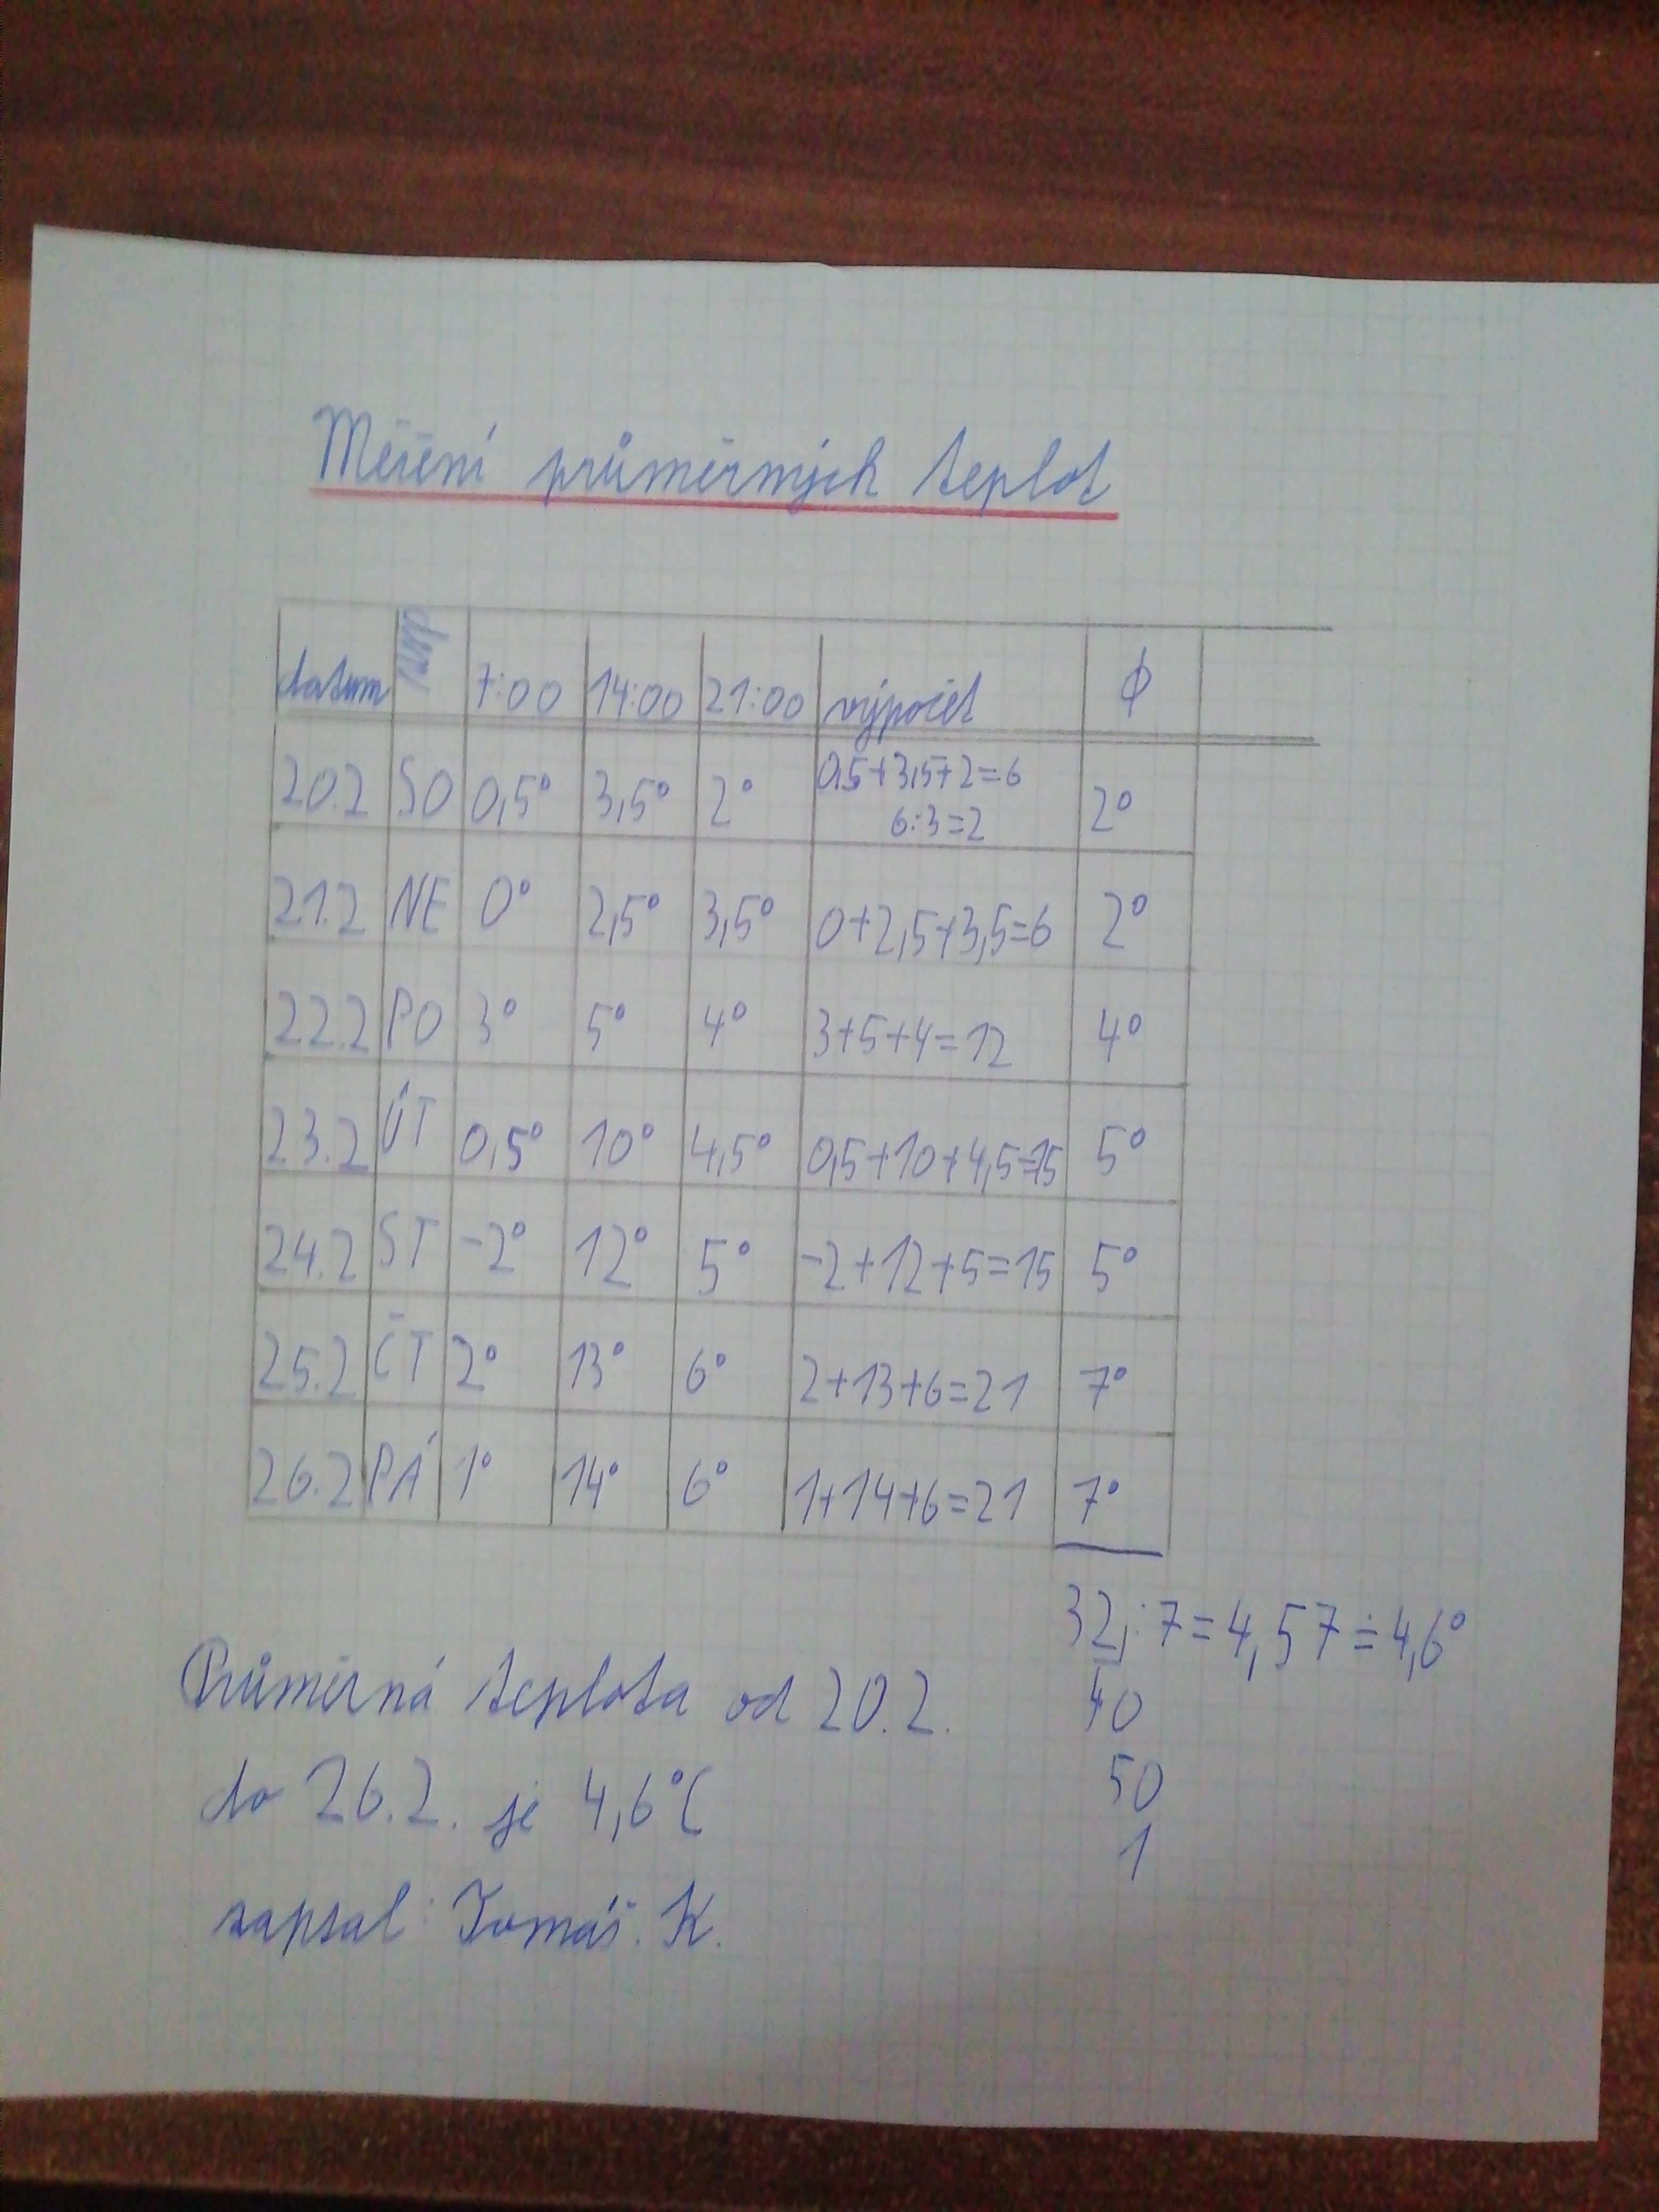 Měření průměrných teplot
datum 7:00 14:00 21:00 výpočet ϕ
20.2 SO 0,5° 3,5° 2° 0,5+3,5+2=6 2°
6:3=2
21.2 NE 0° 2,5° 3,5° 0+2,5+3,5=6 2°
22.2 PO 3° 5° 4° 3+5+4=12 4°
23.2 ÚT 0,5° 10° 4,5° 0,5+10+4,5=15 5°
24.2 ST -2° 12° 5° -2+12+5=15 5°
25.2 ČT 2° 13° 6° 2+13+6=21 7°
26.2 PÁ 1° 14° 6° 1+14+6=21 7°
32,:7=4,57≐4,6°
40
50
1
Průměrná teplota od 20.2.
do 26.2. je 4,6°C
zapsal: Tomáš. K.